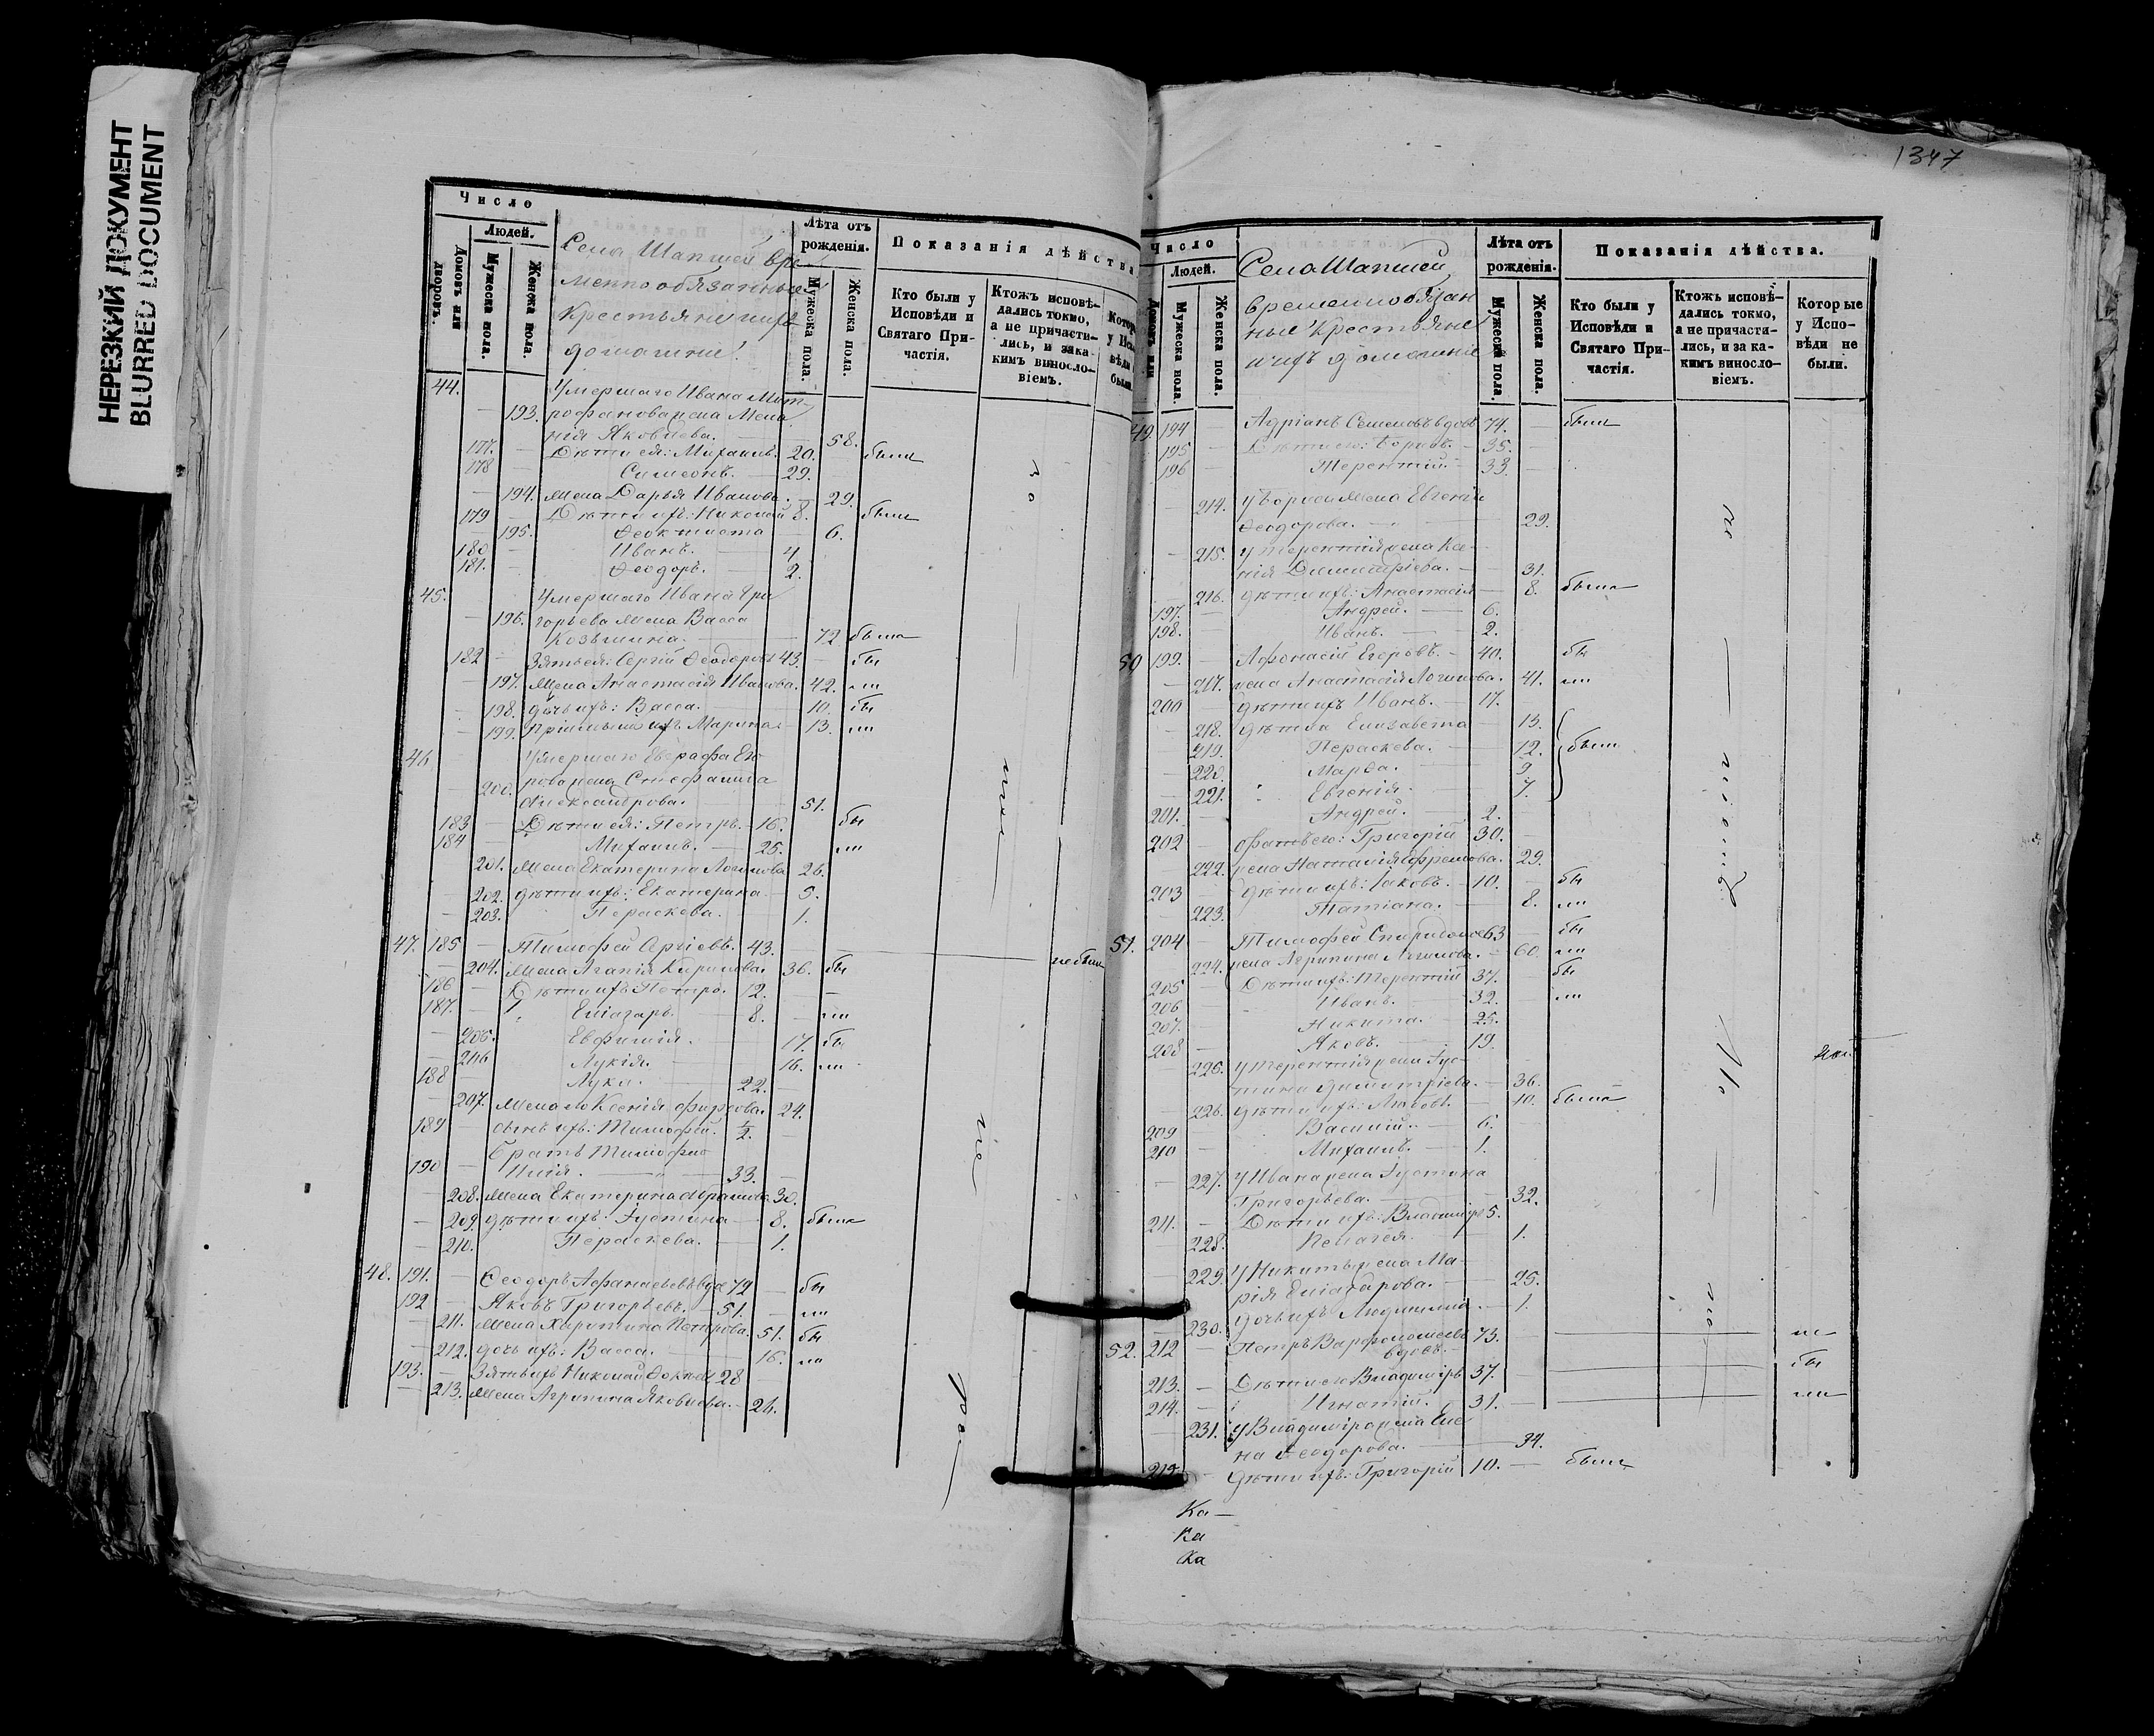 НЕРЕЗКИЙ ДОКУМЕНТ
BLURRED DOCUMENT
Число
Людей.
Домовъ или дворовъ.
Мужеска пола.
Женска пола.
Села Шапшей вре-
менно обязанные
крестьяне и ихъ
домашніе.
Лѣта отъ рожденія.
Мужеска пола.
Женска пола.
Показанія дѣйства
Кто были у Исповѣди и Святаго Причастія.
Ктожъ исповѣдались токмо, а не причастились, и за каким винословіемъ.
44. Умершаго Ивана Мит-
193. рофанова жена Мела
нія Яковлева. 58.
177. Дѣти ея: Михаилъ. 20. были
178 Симеонъ. 29.
194. Жена Дарья Иванова. 29.
179 Дѣти ихъ: Николай 8. были
195. Феоктиста 6.
180 Иванъ. 4
181. Феодоръ. 2.
45. Умершаго Ивана Гри
196. горьева жена Васса
Козьмина. 72 была
182 Зять ея: Сергій Феодоровъ 43. бы
197. Жена Анастасія Иванова. 42. ли
198. дочь ихъ: Васса. 10. бы
199. Пріемышъ ихъ Марина 13. ли
46 Умершаго Евграфа Его
200. рова жена Стефанида
Александрова. 51.
183 Дѣти ея: Петръ. 16. бы
184 Михаилъ. 25. ли
201. Жена Екатерина Логинова 26.
202. дѣти ихъ: Екатерина 5.
203. Параскева. 1.
47. 185 Тимофей 43. не былъ
204. Жена Агапія Кирилова. 36. бы
186 Дѣти ихъ Петръ. 12.
187. Еліазаръ 8. ли
205. Евфимія. 17. бы
206 Лукія. 16. ли
188 Лука. 22.
207. Жена его Ксенія Фирсова. 24.
189 сынъ ихъ: Тимофей. 1/2.
Братъ Тимофею
190 Илія. 33.
208. Жена Екатерина Абрамова 30.
209. дѣти ихъ: Іустина 8. была
210. Параскева. 1.
48. 191. Феодоръ Афанасьевъ вдов 72 бы
192 Яковъ Григорьевъ. 51. ли
211. Жена Харитина Петрова. 51. бы
212. дочь ихъ: Васса. 16. ли
193. Зять ихъ Николай 28
213. Жена Агрипина Яковлева. 26.
1347
Число
Людей.
Мужеска пола.
Женска пола.
Села Шапшей
временнообязан
ные крестьяне
и ихъ домашніе
Лѣта отъ рожденія.
Мужеска пола.
Женска пола.
Показанія дѣйства.
Кто были у Исповѣди и Святаго Причастія.
Ктожъ исповѣдались токмо, а не причастились, и за какимъ винословіемъ.
Которые у Исповѣди не были.
49. 194 Адріанъ Семеновъ вдовъ 74. были
195 Дѣти его: Борисъ. 35.
196 Терентій. 33.
214. у Бориса жена Евгенія
Феодорова. 29.
215. у Терентія жена Ксе-
нія Димитріева. 31.
216. дѣти ихъ: Анастасія 8. была
197. Андрей. 6.
198. Иванъ. 2.
50 199. Афонасій Егоровъ. 40. бы
217. жена Анастасія Логинова. 41. ли
200 дѣти ихъ Иванъ. 17.
218. дѣти Елизавета 15.
219. Параскева. 12. были
220. Марфа. 9
221. Евгенія. 7.
201. Андрей. 2.
202 братъ его: Григорій 30.
222. жена Наталія Ефремова. 29.
203 дѣти ихъ: Іаковъ. 10. бы
223. Татіана. 8. ли
51. 204 Тимофей Спиридонов 63 бы
224. жена Агрипина Логинова. 60. ли
205 Дѣти ихъ: Терентій 37. бы
206 Иванъ. 32. ли
207. Никита. 25.
208 Яковъ. 19.
225. у Терентія жена Іус-
тина Димитріева. 36.
226. дѣти ихъ: Любовь. 10. была
209 Василій. 6.
210 Михаилъ. 1.
227. у Ивана жена Іустина
Григорьева. 32.
211. Дѣти ихъ: Владиміръ 5.
228. Пелагея. 1.
229. у Никиты жена Ма-
рія Еліазарова. 25.
230. дочь ихъ Людмила. 1.
52. 212 Петръ Варфоломеевъ 73. не
вдовъ.
213. Дѣти его Владиміръ 37. бы
214. Игнатій. 31. ли
231. у Владиміра жена Еле
на Феодорова. 34.
215. дѣти ихъ: Григорій 10. были
Ка-
Ка
Ка